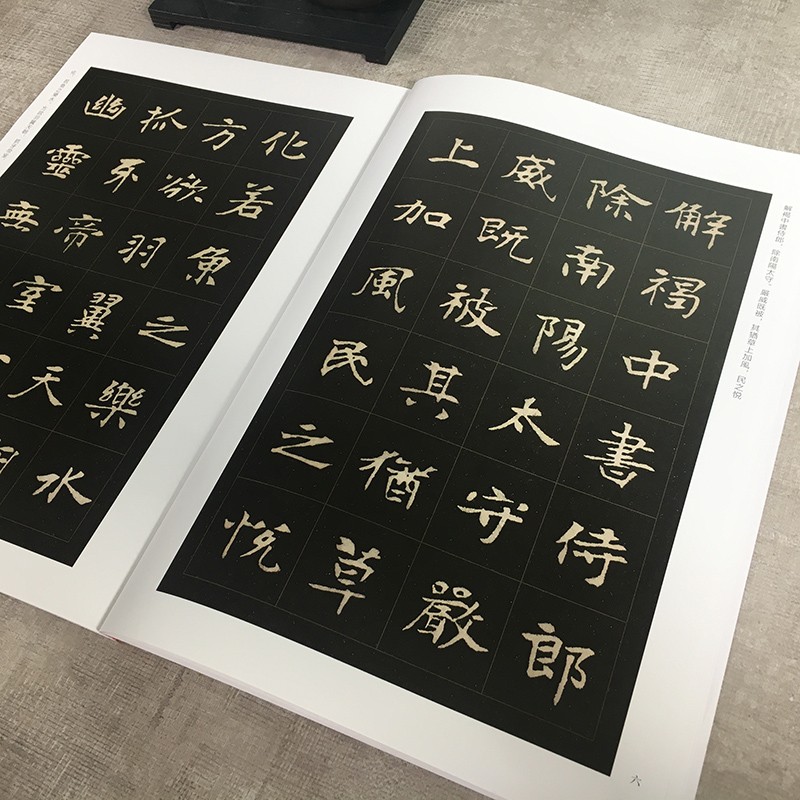 解褐中書侍郎，除南陽太守。嚴威既被，其猶草上加風，民之悅
解褐中書侍郎
除南陽太守嚴
威既被其猶草
上加風民之悅
六
化若魚之樂水
方欲羽翼天
抓牙帝室
幽靈無